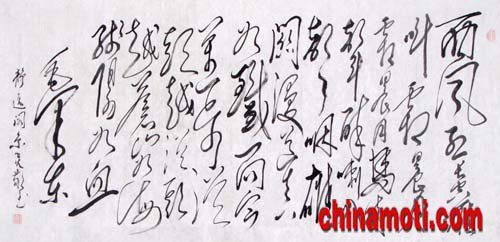 西风烈长空雁
叫霜晨月
霜晨月馬蹄
声碎喇叭
声咽雄
關漫道真
如鐵而今
迈步從
頭越從頭
越蒼山如海
残陽如血
毛泽东
chinamoti.com